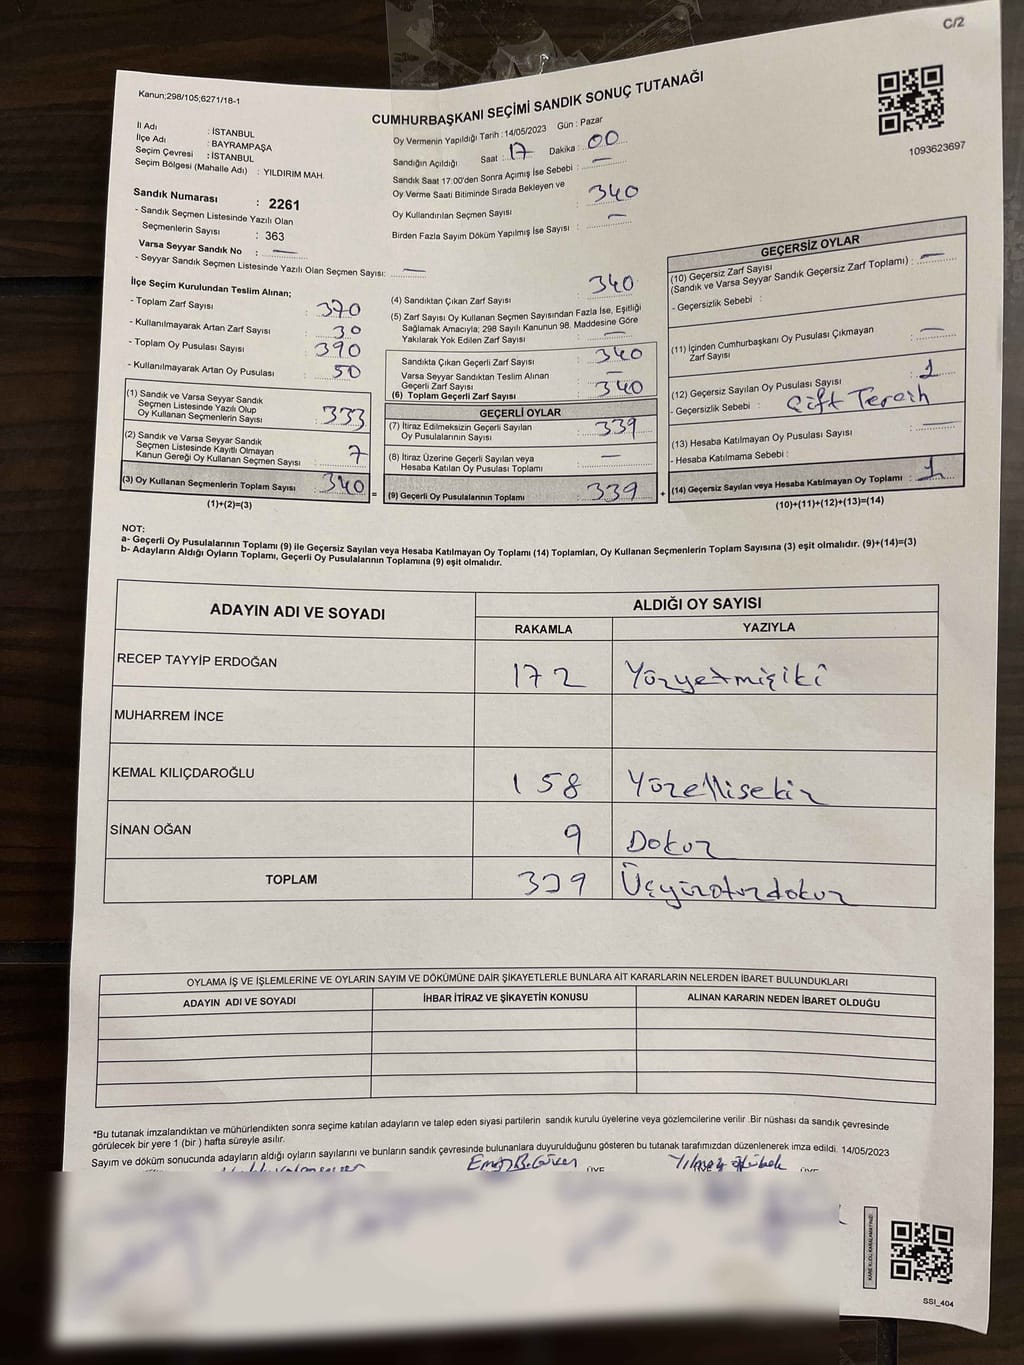 C/2
Kanun;298/105;6271/18-1
CUMHURBAŞKANI SEÇİMİ SANDIK SONUÇ TUTANAĞI
1093623697
İl Adı : İSTANBUL
İlçe Adı : BAYRAMPAŞA
Seçim Çevresi : İSTANBUL
Seçim Bölgesi (Mahalle Adı) : YILDIRIM MAH.
Sandık Numarası : 2261
- Sandık Seçmen Listesinde Yazılı Olan
Seçmenlerin Sayısı : 363
Varsa Seyyar Sandık No : —
- Seyyar Sandık Seçmen Listesinde Yazılı Olan Seçmen Sayısı: —
Oy Vermenin Yapıldığı Tarih : 14/05/2023 Gün : Pazar
Sandığın Açıldığı Saat : 17 Dakika : 00
Sandık Saat 17:00'den Sonra Açımış İse Sebebi : —
Oy Verme Saati Bitiminde Sırada Bekleyen ve
Oy Kullandırılan Seçmen Sayısı : 340
Birden Fazla Sayım Döküm Yapılmış İse Sayısı : —
İlçe Seçim Kurulundan Teslim Alınan;
- Toplam Zarf Sayısı : 370
- Kullanılmayarak Artan Zarf Sayısı : 30
- Toplam Oy Pusulası Sayısı : 390
- Kullanılmayarak Artan Oy Pusulası : 50
(1) Sandık ve Varsa Seyyar Sandık
Seçmen Listesinde Yazılı Olup
Oy Kullanan Seçmenlerin Sayısı : 333
(2) Sandık ve Varsa Seyyar Sandık
Seçmen Listesinde Kayıtlı Olmayan
Kanun Gereği Oy Kullanan Seçmen Sayısı : 7
(3) Oy Kullanan Seçmenlerin Toplam Sayısı : 340 =
(1)+(2)=(3)
(4) Sandıktan Çıkan Zarf Sayısı : 340
(5) Zarf Sayısı Oy Kullanan Seçmen Sayısından Fazla İse, Eşitliği
Sağlamak Amacıyla; 298 Sayılı Kanunun 98. Maddesine Göre
Yakılarak Yok Edilen Zarf Sayısı : —
Sandıkta Çıkan Geçerli Zarf Sayısı : 340
Varsa Seyyar Sandıktan Teslim Alınan
Geçerli Zarf Sayısı : —
(6) Toplam Geçerli Zarf Sayısı : 340
GEÇERLİ OYLAR
(7) İtiraz Edilmeksizin Geçerli Sayılan
Oy Pusulalarının Sayısı : 339
(8) İtiraz Üzerine Geçerli Sayılan veya
Hesaba Katılan Oy Pusulası Toplamı : —
(9) Geçerli Oy Pusulalarının Toplamı : 339 +
GEÇERSİZ OYLAR
(10) Geçersiz Zarf Sayısı
(Sandık ve Varsa Seyyar Sandık Geçersiz Zarf Toplamı) : —
- Geçersizlik Sebebi :
(11) İçinden Cumhurbaşkanı Oy Pusulası Çıkmayan
Zarf Sayısı : —
(12) Geçersiz Sayılan Oy Pusulası Sayısı : 1
- Geçersizlik Sebebi : Çift Tercih
(13) Hesaba Katılmayan Oy Pusulası Sayısı : —
- Hesaba Katılmama Sebebi :
(14) Geçersiz Sayılan veya Hesaba Katılmayan Oy Toplamı : 1
(10)+(11)+(12)+(13)=(14)
NOT:
a- Geçerli Oy Pusulalarının Toplamı (9) ile Geçersiz Sayılan veya Hesaba Katılmayan Oy Toplamı (14) Toplamları, Oy Kullanan Seçmenlerin Toplam Sayısına (3) eşit olmalıdır. (9)+(14)=(3)
b- Adayların Aldığı Oyların Toplamı, Geçerli Oy Pusulalarının Toplamına (9) eşit olmalıdır.
ADAYIN ADI VE SOYADI ALDIĞI OY SAYISI
RAKAMLA YAZIYLA
RECEP TAYYİP ERDOĞAN 172 Yüzyetmişiki
MUHARREM İNCE
KEMAL KILIÇDAROĞLU 158 Yüzellisekiz
SİNAN OĞAN 9 Dokuz
TOPLAM 339 Üçyüzotuzdokuz
OYLAMA İŞ VE İŞLEMLERİNE VE OYLARIN SAYIM VE DÖKÜMÜNE DAİR ŞİKAYETLERLE BUNLARA AİT KARARLARIN NELERDEN İBARET BULUNDUKLARI
ADAYIN ADI VE SOYADI İHBAR İTİRAZ VE ŞİKAYETİN KONUSU ALINAN KARARIN NEDEN İBARET OLDUĞU
*Bu tutanak imzalandıktan ve mühürlendikten sonra seçime katılan adayların ve talep eden siyasi partilerin sandık kurulu üyelerine veya gözlemcilerine verilir .Bir nüshası da sandık çevresinde
görülecek bir yere 1 (bir ) hafta süreyle asılır.
Sayım ve döküm sonucunda adayların aldığı oyların sayılarını ve bunların sandık çevresinde bulunanlara duyurulduğunu gösteren bu tutanak tarafımızdan düzenlenerek imza edildi. 14/05/2023
ÜYE ÜYE
SSI_404